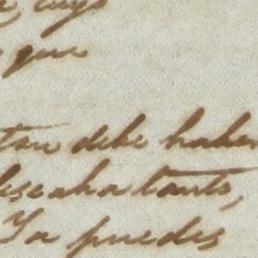 cuyo
que
tan debe haber
deseaba tanto,
Ya puedes